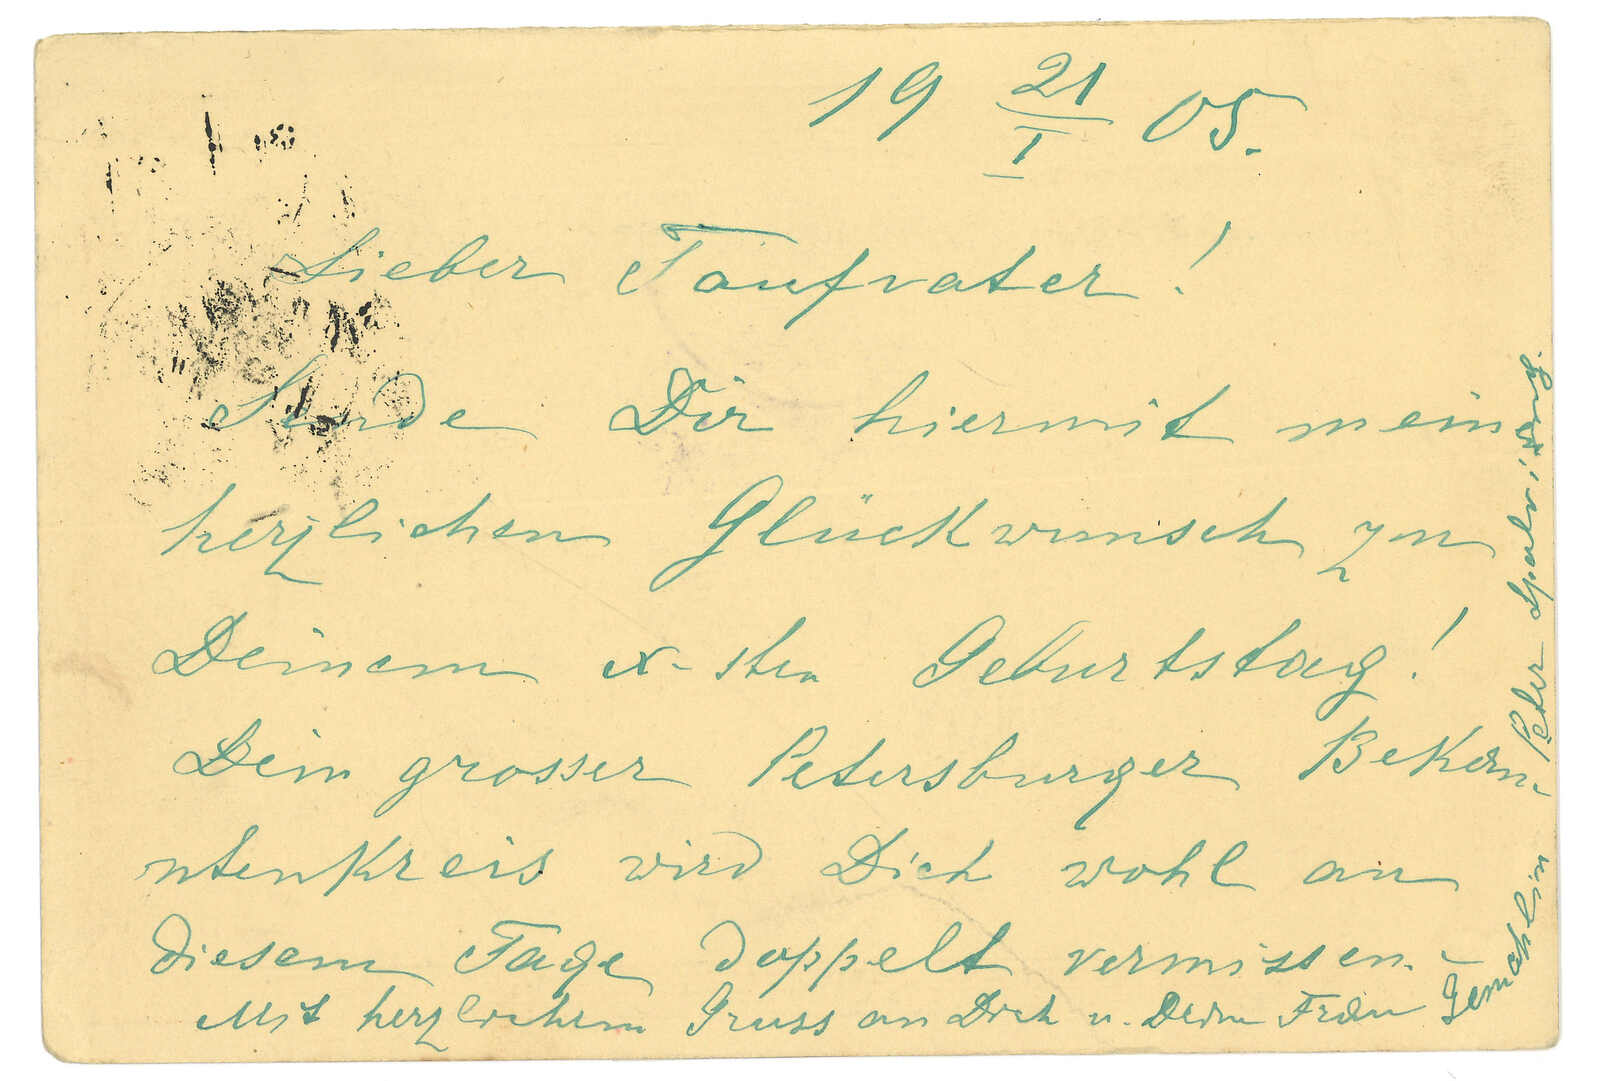 19 21/I 05.
Lieber Taufvater!
Sende Dir hiermit mein
herzlichen Glückwunsch zu
Deinem x-sten Geburtstag!
Dein grosser Petersburger Bekan-
ntenkreis wird Dich wohl an
diesem Tage doppelt vermissen.-
Mit herzlichem Gruss an Dich u. Deine Frau Gemahlin
Peter